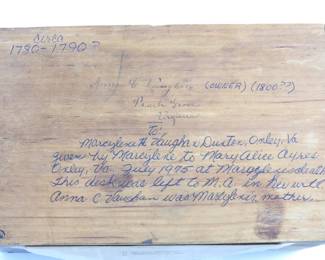 circa
1780-1790?
Anna C Vaughan (OWNER) (1800??)
Virginia
TO:
Marcylene H Vaughan Dunton, Onley, Va
given by Marcylene to Mary Alice Ayres
Onley, Va. July 1975 at Marcylenes death
This desk was left to M.A. in her will
Anna C Vaughan was Marcylenes mother.